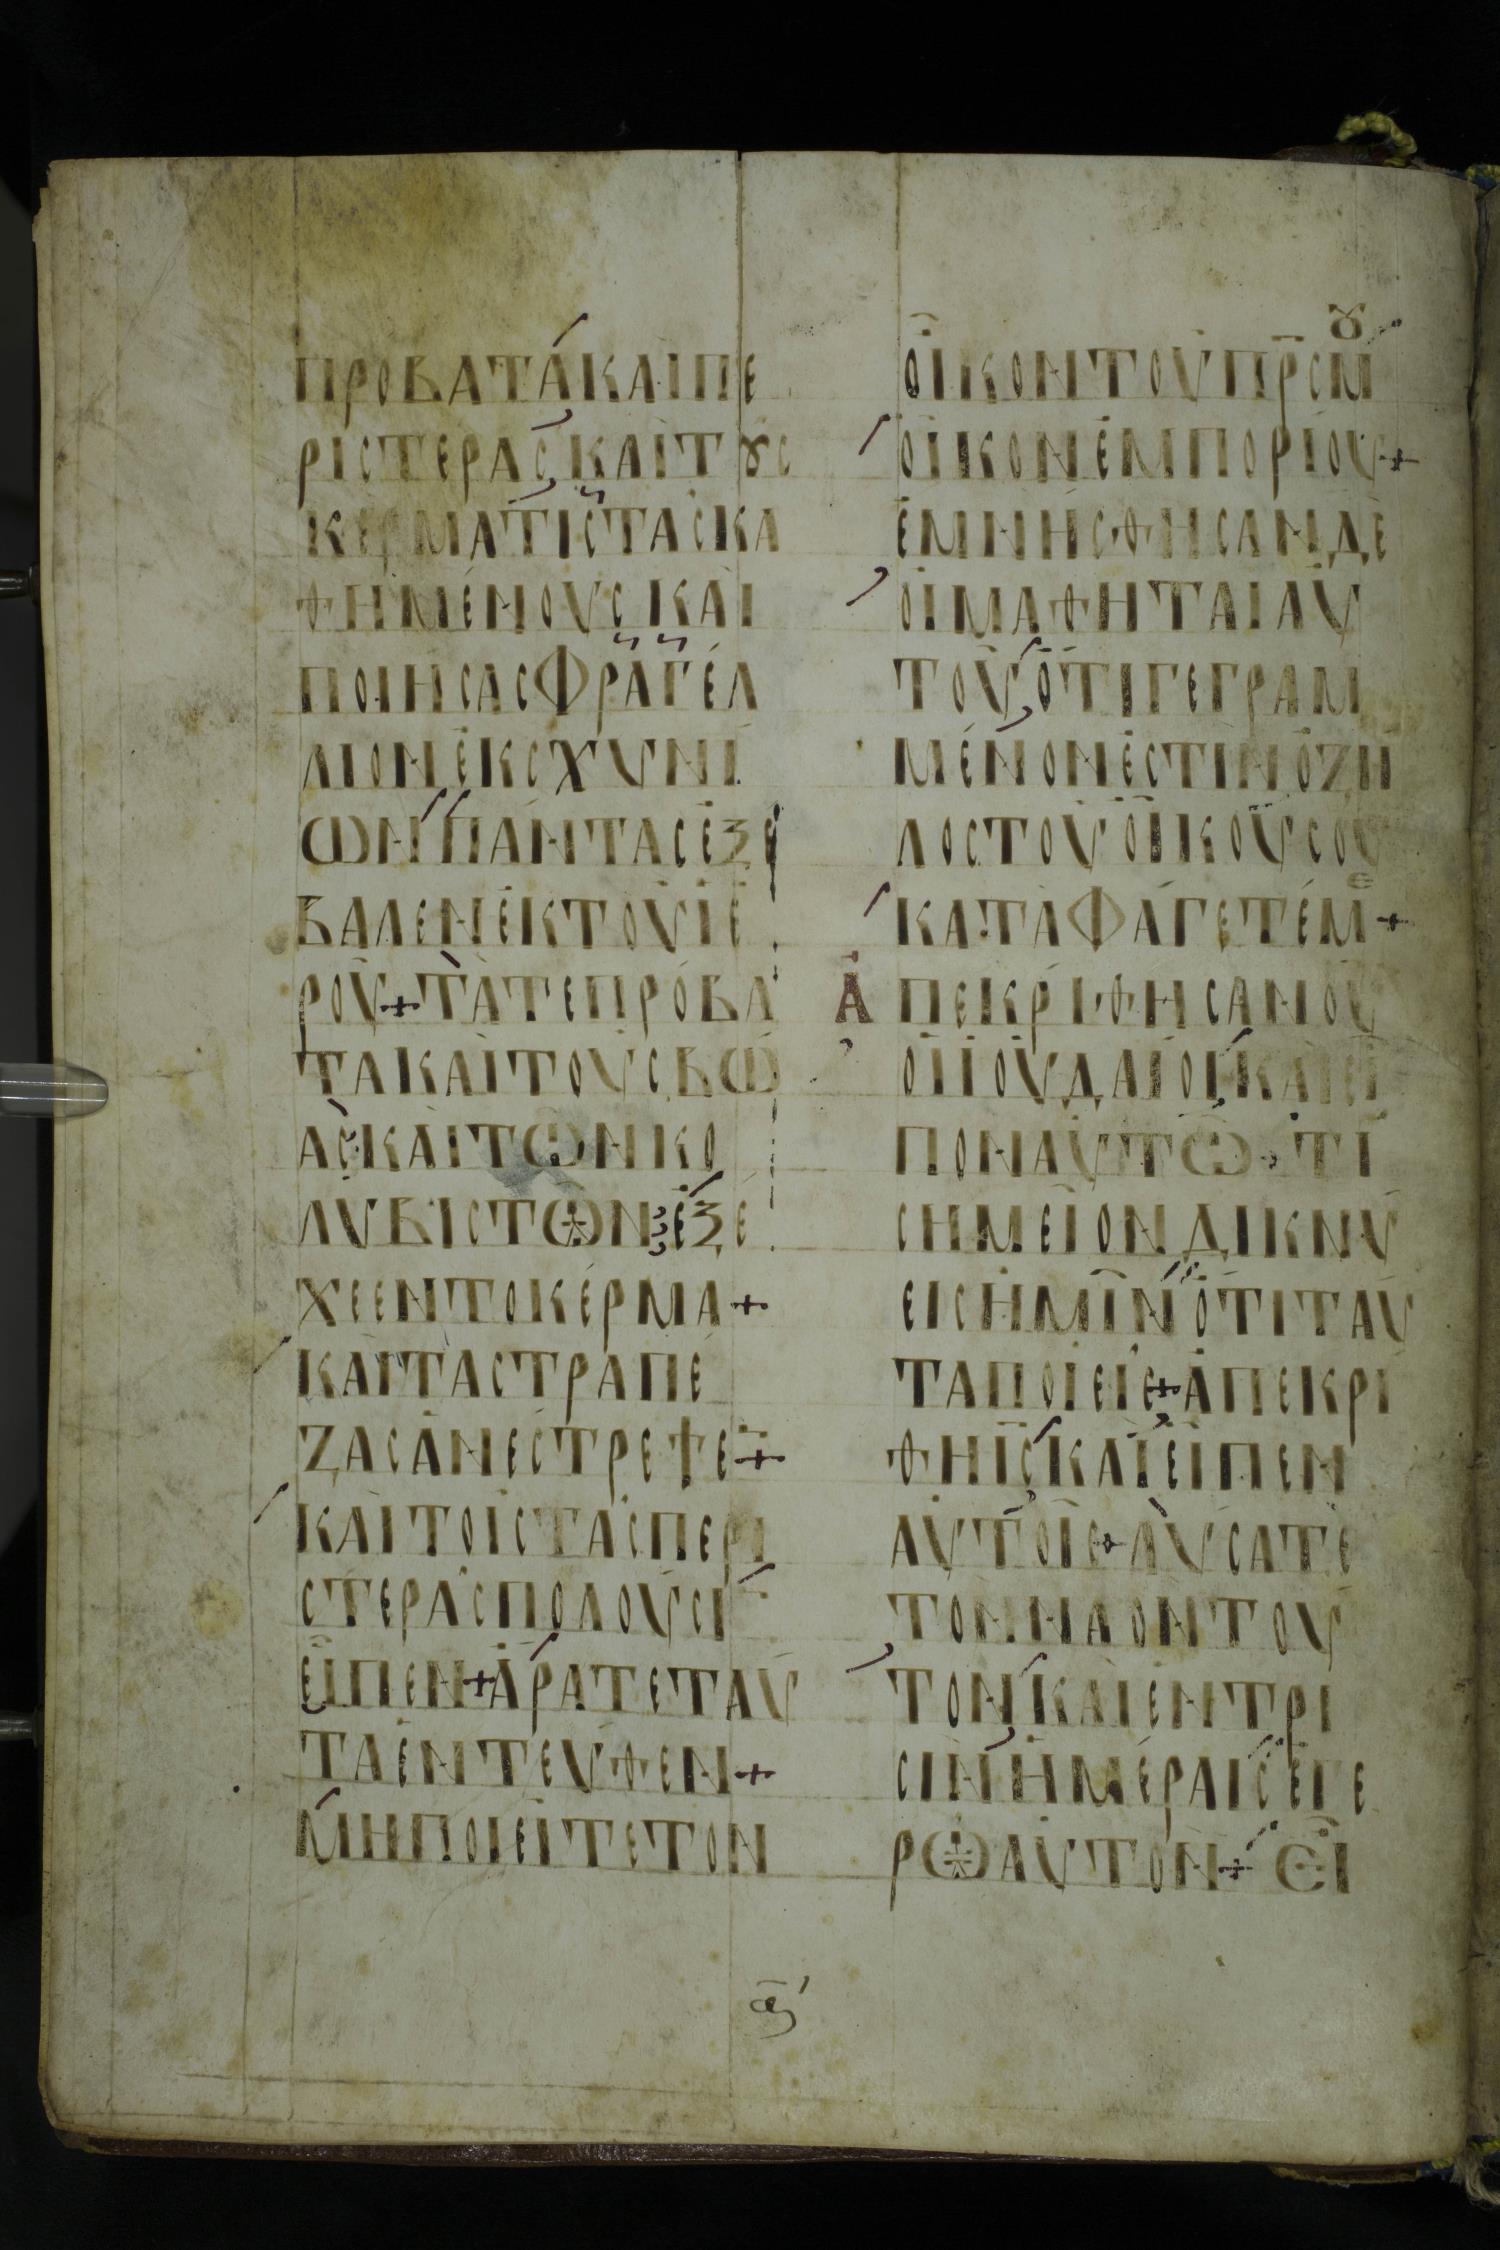 ΠΡΟΒΑΤΑΚΑΙΠΕ
ΡΙCΤΕΡΑCΚΑΙΤȣC
ΚΕΡΜΑΤΙCΤΑCΚΑ
ΘΗΜΕΝΟΥCΚΑΙ
ΠΟΙΗCΑCΦΡΑΓΕΛ
ΛΙΟΝΕΚCΧΥΝΙ
ΩΝΠΑΝΤΑCΕΞΕ
ΒΑΛΕΝΕΚΤΟΥΙΕ
ΡΟΥ+ΤΑΤΕΠΡΟΒΑ
ΤΑΚΑΙΤΟΥCΒΩ
ΑCΚΑΙΤΩΝΚΟ
ΛΥΒΙCΤΩΝΕΞΕ
ΧΕΕΝΤΟΚΕΡΜΑ+
ΚΑΙΤΑCΤΡΑΠΕ
ΖΑCΑΝΕCΤΡΕΨΕ+
ΚΑΙΤΟΙCΤΑCΠΕΡΙ
CΤΕΡΑCΠΟΛΟΥCΙ
ΕΙΠΕΝ+ΑΡΑΤΕΤΑΥ
ΤΑΕΝΤΕΥΘΕΝ+
ΜΗΠΟΙΕΙΤΕΤΟΝ
ΟΙΚΟΝΤΟΥΠΡ̅CΜȣ
ΟΙΚΟΝΕΜΠΟΡΙΟΥ+
ΕΜΝΗCΘΗCΑΝΔΕ
ΟΙΜΑΘΗΤΑΙΑΥ
ΤΟΥΟΤΙΓΕΓΡΑΜ
ΜΕΝΟΝΕCΤΙΝΟΖΗ
ΛΟCΤΟΥΟΙΚΟΥCΟΥ
ΚΑΤΑΦΑΓΕΤΕΜΕ+
ΑΠΕΚΡΙΘΗCΑΝΟΥ
ΟΙΙΟΥΔΑΙΟΙΚΑΙΕΙ
ΠΟΝΑΥΤΩ+ΤΙ
CΗΜΕΙΟΝΔΙΚΝΥ
ΕΙCΗΜΙΝΟΤΙΤΑΥ
ΤΑΠΟΙΕΙC+ΑΠΕΚΡΙ
ΘΗΙ̅C̅ΚΑΙΕΙΠΕΝ
ΑΥΤΟΙC+ΛΥCΑΤΕ
ΤΟΝΝΑΟΝΤΟΥ
ΤΟΝΚΑΙΕΝΤΡΙ
CΙΝΗΜΕΡΑΙCΕΓΕ
ΡΩΑΥΤΟΝ+ΕΙ